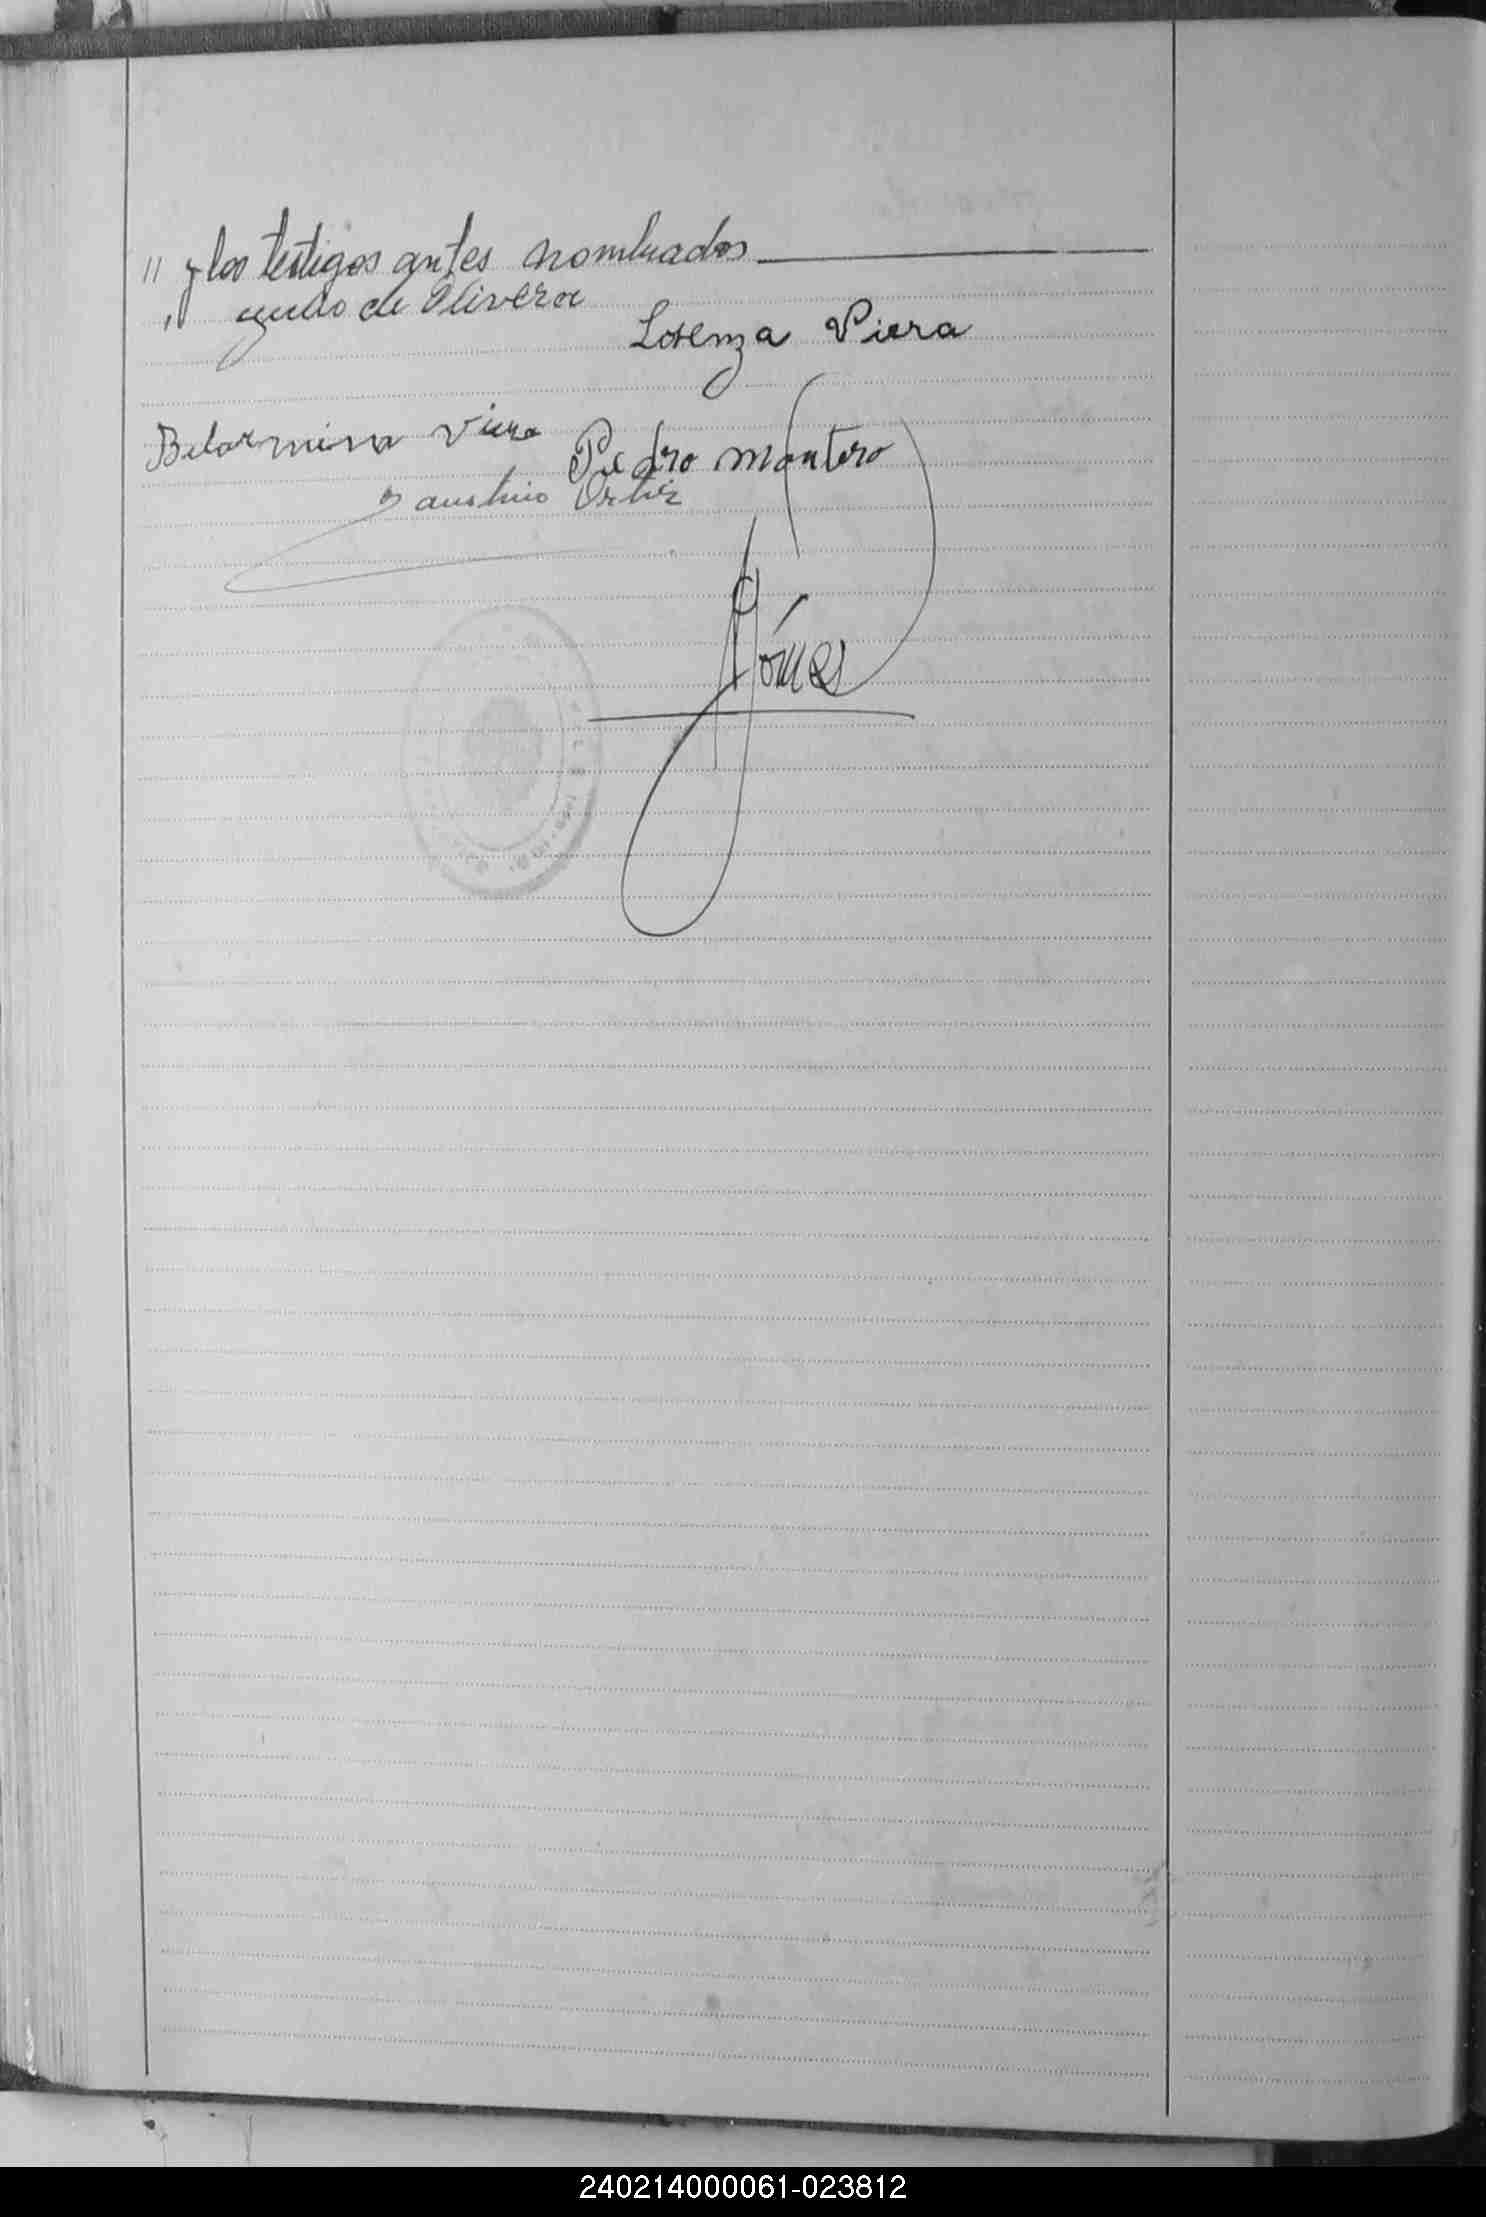 " y los testigos antes nombrados
de Olivera
Lorenza Viera
Belarmina Viera
Pedro Montero
Faustino Ortiz
Gómez
240214000061-023812